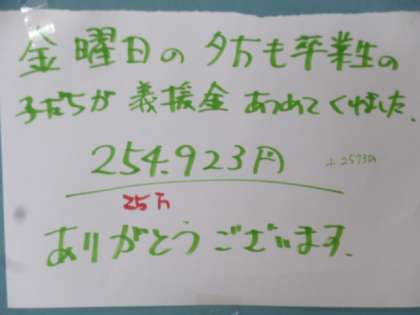 金曜日の夕方も卒業生の
子だちが義援金あつめてくれました.
254.923円 +2573円
25万
ありがとうございます.